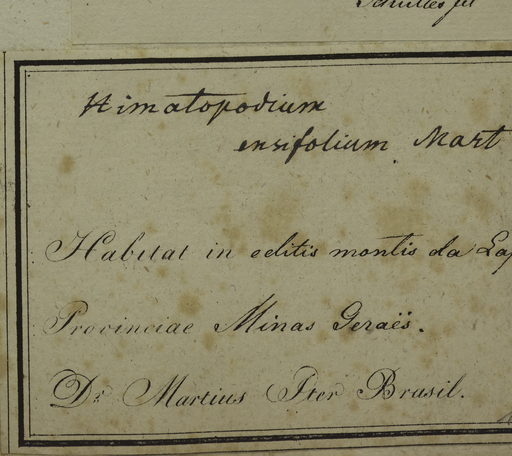 Schultes fil
Himatopodium
ensifolium Mart
Habitat in editis montis da Lap
Provinciae Minas Geraës.
Dr Martius Iter Brasil.